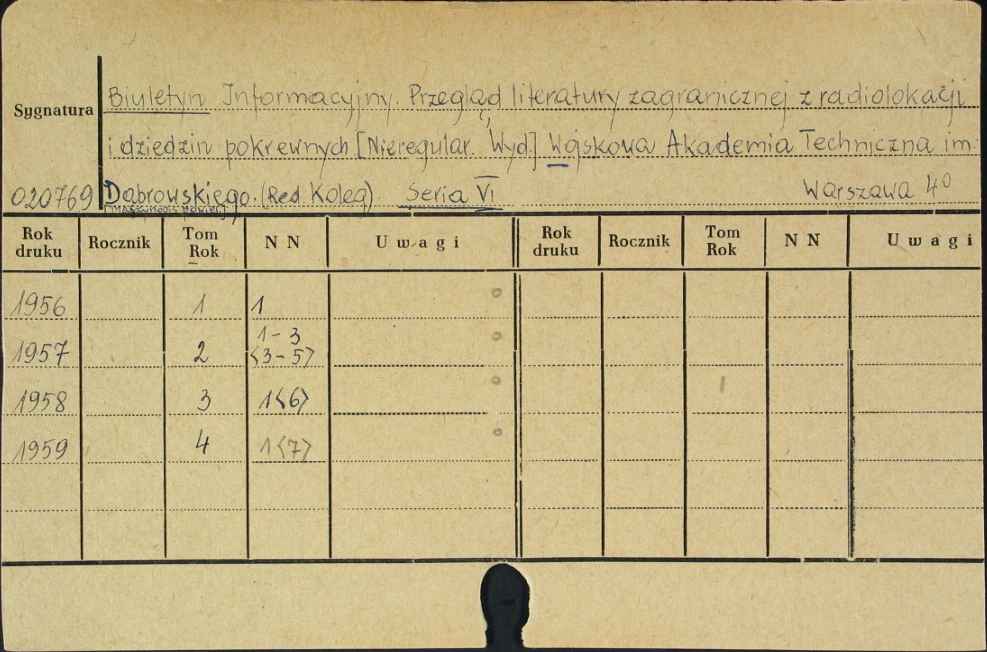 Biuletyn Informacyjny. Przegląd literatury zagranicznej z radiolokacji
Sygnatura
i dziedzin pokrewnych [Nieregular. Wyd.] Wojskowa Akademia Techniczna im.
020769 Dąbrowskiego. (Red. Koleg) Seria VI Warszawa 40
Rok druku Rocznik Tom Rok N N Uwagi Rok druku Rocznik Tom Rok N N Uwagi
1956 1 1
1957 2 1-3 <3-5>
1958 3 1<6>
1959 4 1<7>